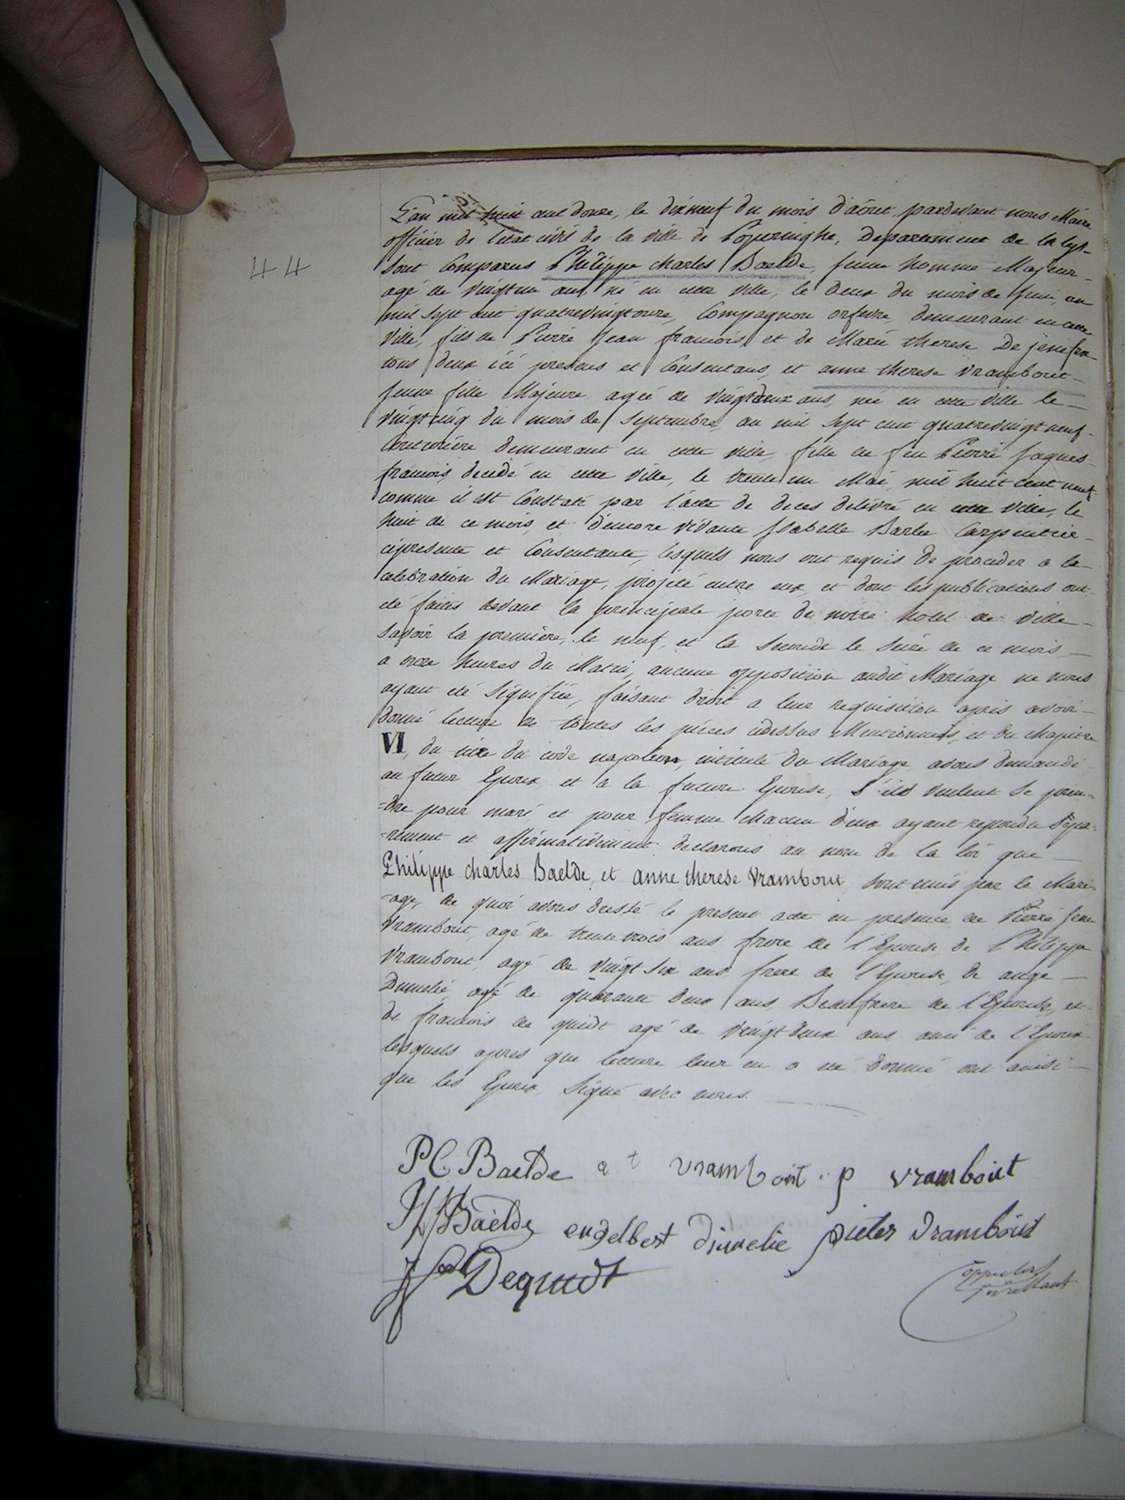 44
L'an mil huit cent douze, le dixneuf du mois d'aôut pardevant nous Maire
officier de l'etat civil de la ville de Poperinghe, Departement de la Lys
sont Comparus Philippe charles Baelde, jeune homme Majeur
agé de vingt un ans, né en cette ville, le deux du mois de Juin, an
mil sept cent quatrevingt onze, Compagnon orfevre demeurant en cette
ville, fils de Pierre Jean francois, et de Marie therese De
tous deux ici presens et Consentans, et anne therese Vrambout
jeune fille Majeure agée de vingtdeux ans, née en cette ville le
vingt cinq du mois de Septembre, an mil sept cent quatrevingt neuf
couturière demeurant en cette ville, fille de feu Pierre Jaques
francois decédé en cette ville, le trente un Mai, mil huit cent neuf
comme il est Constaté par l'acte de deces delivré en cette ville, le
huit de ce mois, et d'encore vivante Isabelle Barbe Carpentier
cipresente et Consentante, lesquels nous ont requis de proceder a la
celebration du Mariage, projeté entre eux et dont les publications ont
été faites devant la principale porte de notre hotel de ville
savoir la première, le neuf, et la seconde le seize de ce mois
a onze heures du Matin, aucune opposition audit Mariage ne nous
ayant été signifiée, faisant droit a leur requisition apris avoir
donné lecture de toutes les pièces cidessus Mentionnées, et du chapitre
VI, du titre du code napoleon, intitulé du Mariage avons demandé
au futur Epoux et a la future Epouse, s'ils veulent se pren-
-dre pour mari et pour femme chacun d'eux ayant repondu sépa-
-rement et affirmativement, declarons au nom de la loi que
Philippe charles Baelde, et anne therese Vrambout, sont unis par le Mari-
-age, de quoi avons dressé le present acte en presence de Pierre Jean
Vrambout, agé de trente trois ans frere de l'Epouse, de Philippe
Vrambout, agé de vingt six ans frere de l'Epouse, de ange
Dumelié agé de quarante deux ans, Beaufrere de l'Epouse, et
de francois de quidt agé de vingt deux ans ami de l'Epoux
lesquels apres que lecture leur en a été donnée ont ainsi
que les Epoux, Signé avec nous.
PC Baelde a t vrambout p vrambout
Baelde engelbert dumelie pieter Vrambout
Dequidt